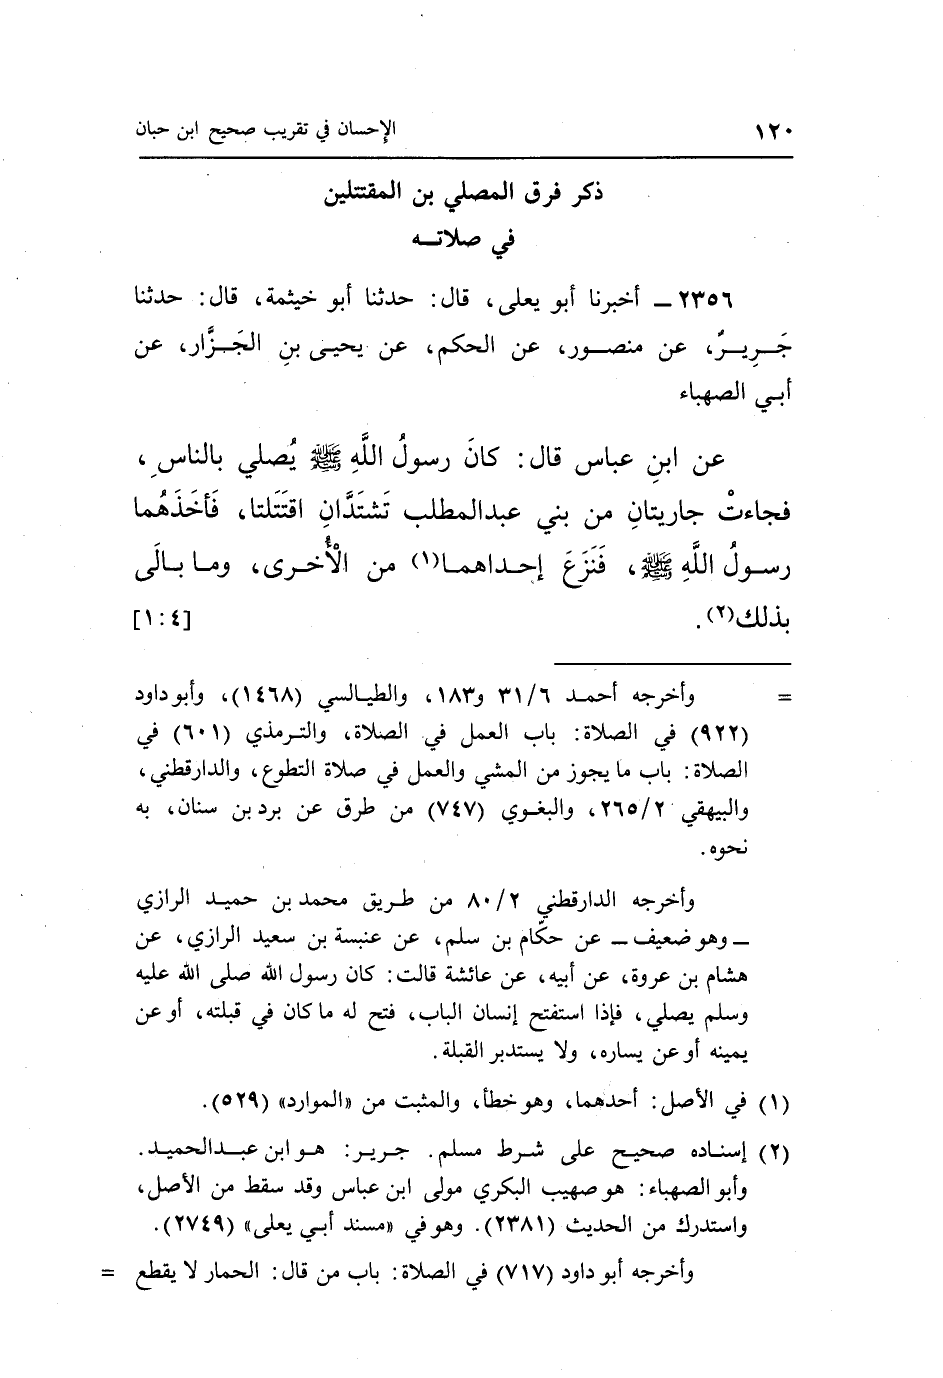 ١٢٠ الإحسان في تقريب صحيح ابن حبان
ذكر فرق المصلي بن المقتتلين
في صلاتــه
٢٣٥٦ ــ أخبرنا أبو يعلى، قال: حدثنا أبو خيثمة، قال: حدثنا
جَــرِيــرٌ، عن منصــور، عن الحكم، عن يحيى بنِ الجَــزَّار، عن
أبـي الصهباء
عن ابنِ عباس قال: كانَ رسولُ اللَّهِ ﷺ يُصلي بالناسِ،
فجاءتْ جاريتانِ من بني عبدالمطلب تَشتَدَّانِ اقتَتَلتا، فَأخَذَهُما
رســولُ اللَّهِ ﷺ، فَنَزَعَ إحـداهمـا(١) من الْأُخـرى، ومـا بـالَى
بذلك(٢). [٤ : ١]
= وأخرجه أحمـد ٣١/٦ و١٨٣، والطيـالسي (١٤٦٨)، وأبو داود
(٩٢٢) في الصلاة: باب العمل في الصلاة، والتـرمذي (٦٠١) في
الصلاة: باب ما يجوز من المشي والعمل في صلاة التطوع، والدارقطني،
والبيهقي ٢٦٥/٢، والبغـوي (٧٤٧) من طرق عن برد بن سنان، به
نحوه.
وأخرجه الدارقطني ٨٠/٢ من طـريق محمد بن حميـد الرازي
ــ وهو ضعيف ــ عن حكّام بن سلم، عن عنبسة بن سعيد الرازي، عن
هشام بن عروة، عن أبيه، عن عائشة قالت: كان رسول الله صلى الله عليه
وسلم يصلي، فإذا استفتح إنسان الباب، فتح له ما كان في قبلته، أو عن
يمينه أو عن يساره، ولا يستدبر القبلة.
(١) في الأصل: أحدهما، وهو خطأ، والمثبت من «الموارد» (٥٢٩).
(٢) إسنـاده صحيح على شـرط مسلم. جـريـر: هـو ابن عبـدالحميـد.
وأبو الصهباء: هو صهيب البكري مولى ابن عباس وقد سقط من الأصل،
واستدرك من الحديث (٢٣٨١). وهو في «مسند أبـي يعلى» (٢٧٤٩).
وأخرجه أبو داود (٧١٧) في الصلاة: باب من قال: الحمار لا يقطع =